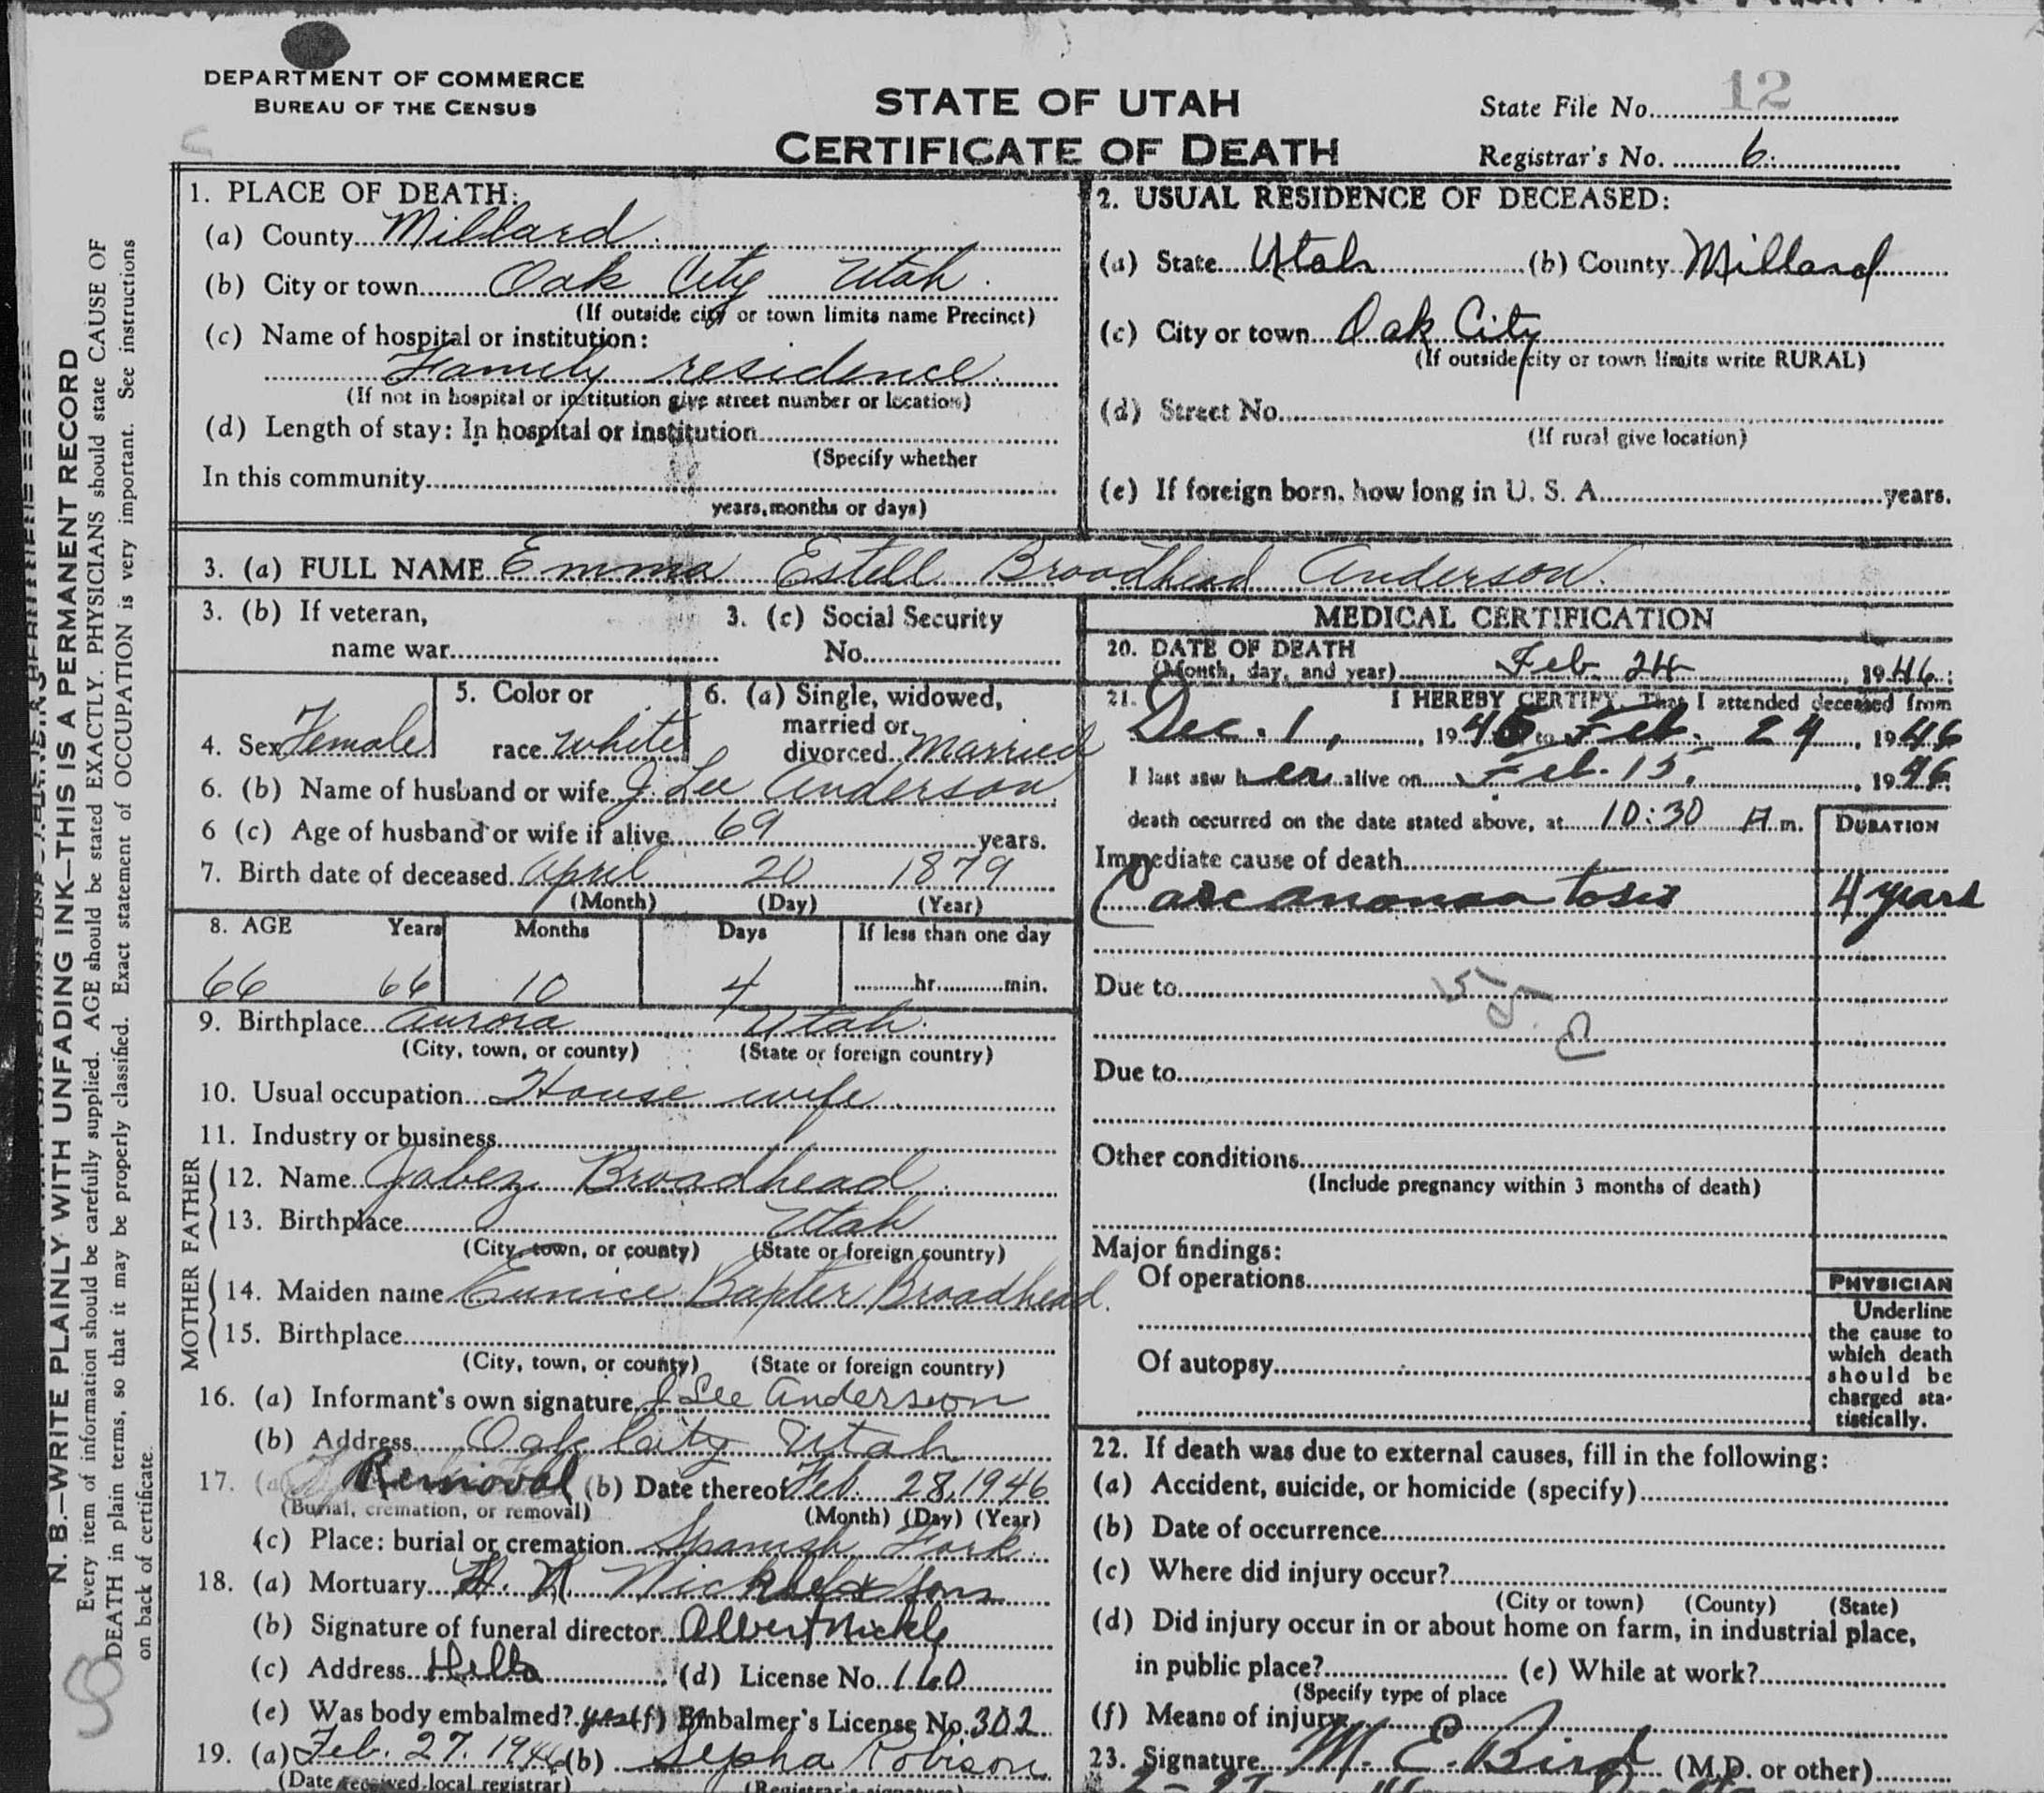 DEPARTMENT OF COMMERCE
BUREAU OF THE CENSUS
STATE OF UTAH
CERTIFICATE OF DEATH
State File No. 12
Registrar's No. 6
N. B.—WRITE PLAINLY WITH UNFADING INK—THIS IS A PERMANENT RECORD
Every item of information should be carefully supplied. AGE should be stated EXACTLY. PHYSICIANS should state CAUSE OF
DEATH in plain terms, so that it may be properly classified. Exact statement of OCCUPATION is very important. See instructions
on back of certificate.
1. PLACE OF DEATH:
(a) County Millard
(b) City or town Oak City Utah
(If outside city or town limits name Precinct)
(c) Name of hospital or institution:
Family residence
(If not in hospital or institution give street number or location)
(d) Length of stay: In hospital or institution
(Specify whether
In this community
years, months or days)
2. USUAL RESIDENCE OF DECEASED:
(a) State Utah (b) County Millard
(c) City or town Oak City
(If outside city or town limits write RURAL)
(d) Street No.
(If rural give location)
(e) If foreign born, how long in U. S. A. years.
3. (a) FULL NAME Emma Estell Broadhead Anderson.
3. (b) If veteran,
name war
3. (c) Social Security
No.
4. Sex Female
5. Color or
race white
6. (a) Single, widowed,
married or
divorced married
6. (b) Name of husband or wife J. Lee Anderson
6 (c) Age of husband or wife if alive 69 years.
7. Birth date of deceased April 20 1879
(Month) (Day) (Year)
8. AGE Years Months Days If less than one day
66 66 10 4 hr. min.
9. Birthplace Aurora Utah
(City, town, or county) (State or foreign country)
10. Usual occupation House wife
11. Industry or business
FATHER
12. Name Jabez Broadhead
13. Birthplace Utah
(City, town, or county) (State or foreign country)
MOTHER
14. Maiden name Eunice Baxter Broadhead.
15. Birthplace
(City, town, or county) (State or foreign country)
16. (a) Informant's own signature J Lee Anderson
(b) Address Oak City Utah
17. (a) Removal (b) Date thereof Feb. 28, 1946
(Burial, cremation, or removal) (Month) (Day) (Year)
(c) Place: burial or cremation Spanish Fork
18. (a) Mortuary Sons
(b) Signature of funeral director Albert Nickle
(c) Address (d) License No. 160
(e) Was body embalmed? yes (f) Embalmer's License No. 302
19. (a) Feb. 27. 1946 (b) Sepha Robison
(Date received local registrar) (Registrar's signature)
MEDICAL CERTIFICATION
20. DATE OF DEATH
(Month, day, and year) Feb. 24, 1946
21. I HEREBY CERTIFY, That I attended deceased from
Dec. 1, 1945 to Feb. 24, 1946
I last saw her alive on Feb. 15, 1946
death occurred on the date stated above, at 10:30 A m.
DURATION
Immediate cause of death
4 years
Due to
Due to
Other conditions
(Include pregnancy within 3 months of death)
Major findings:
Of operations
Of autopsy
PHYSICIAN
Underline
the cause to
which death
should be
charged sta-
tistically.
22. If death was due to external causes, fill in the following:
(a) Accident, suicide, or homicide (specify)
(b) Date of occurrence
(c) Where did injury occur?
(City or town) (County) (State)
(d) Did injury occur in or about home on farm, in industrial place,
in public place? (e) While at work?
(Specify type of place
(f) Means of injury
23. Signature M. E. Bird (M.D. or other)